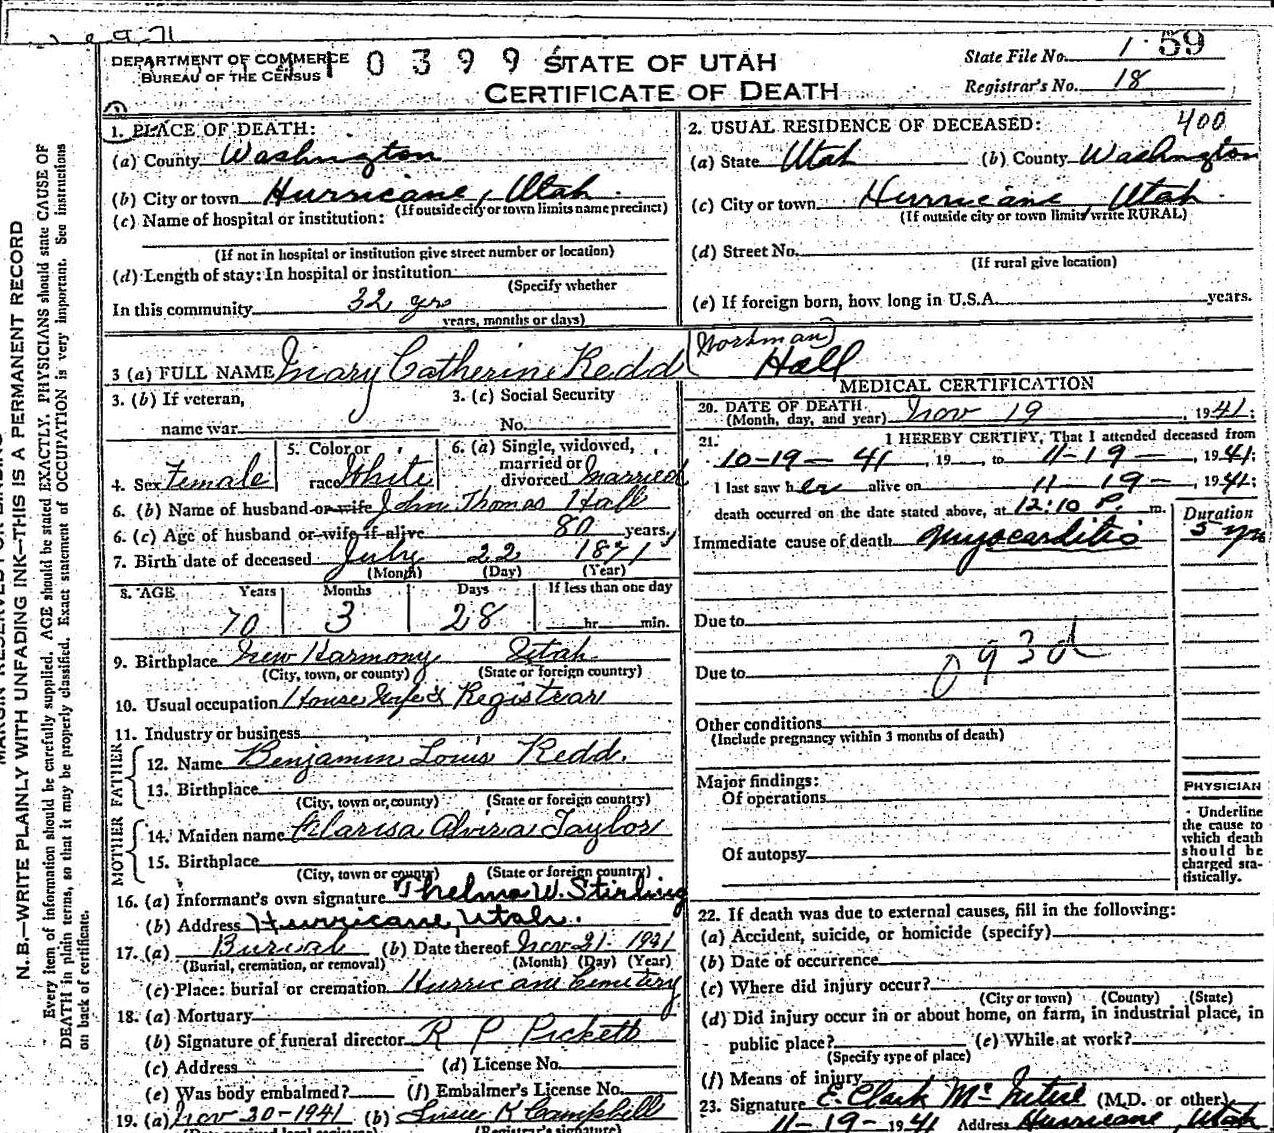 DEPARTMENT OF COMMERCE
BUREAU OF THE CENSUS
0 3 9 9
STATE OF UTAH
CERTIFICATE OF DEATH
State File No. 1 59
Registrar's No. 18
1. PLACE OF DEATH:
(a) County Washington
(b) City or town Hurricane, Utah
(If outside city or town limits name precinct)
(c) Name of hospital or institution:
(If not in hospital or institution give street number or location)
(d) Length of stay: In hospital or institution
(Specify whether
In this community 32 yrs
years, months or days)
2. USUAL RESIDENCE OF DECEASED: 400
(a) State Utah (b) County Washington
(c) City or town Hurricane, Utah
(If outside city or town limits write RURAL)
(d) Street No.
(If rural give location)
(e) If foreign born, how long in U.S.A. years.
3 (a) FULL NAME Mary Catherine Redd (Workman) Hall
3. (b) If veteran,
name war
3. (c) Social Security
No.
4. Sex Female
5. Color or
race White
6. (a) Single, widowed,
married or
divorced Married
6. (b) Name of husband or wife John Thomas Hall
6. (c) Age of husband or wife if alive 80 years,
7. Birth date of deceased July 22 1871
(Month) (Day) (Year)
8. AGE Years Months Days If less than one day
70 3 28 hr. min.
9. Birthplace New Harmony Utah
(City, town, or county) (State or foreign country)
10. Usual occupation House Wife & Registrar
11. Industry or business
FATHER
12. Name Benjamin Louis Redd.
13. Birthplace
(City, town or county) (State or foreign country)
MOTHER
14. Maiden name Clarisa Alvira Taylor
15. Birthplace
(City, town or county) (State or foreign country)
16. (a) Informant's own signature Thelma W. Stirling
(b) Address Hurricane, Utah.
17. (a) Burial (b) Date thereof Nov 21 1941
(Burial, cremation, or removal) (Month) (Day) (Year)
(c) Place: burial or cremation Hurricane Cemetery
18. (a) Mortuary
(b) Signature of funeral director R P Pickett
(c) Address (d) License No.
(e) Was body embalmed? (f) Embalmer's License No.
19. (a) Nov 20-1941 (b) Susie K Campbell
MEDICAL CERTIFICATION
20. DATE OF DEATH
(Month, day, and year) Nov 19, 1941;
21. I HEREBY CERTIFY, That I attended deceased from
10-19-41, 19 , to 11-19-, 1941;
I last saw her alive on 11-19-, 1941;
death occurred on the date stated above, at 12:10 P. m.
Duration
Immediate cause of death Myocarditis 5 yrs
Due to
093d
Due to
Other conditions
(Include pregnancy within 3 months of death)
Major findings:
Of operations
Of autopsy
PHYSICIAN
Underline
the cause to
which death
should be
charged sta-
tistically.
22. If death was due to external causes, fill in the following:
(a) Accident, suicide, or homicide (specify)
(b) Date of occurrence
(c) Where did injury occur?
(City or town) (County) (State)
(d) Did injury occur in or about home, on farm, in industrial place, in
public place? (e) While at work?
(Specify type of place)
(f) Means of injury
23. Signature E. Clark Mc Intire (M.D. or other)
11-19-1941 Address Hurricane, Utah
N. B.—WRITE PLAINLY WITH UNFADING INK—THIS IS A PERMANENT RECORD
Every item of information should be carefully supplied. AGE should be stated EXACTLY. PHYSICIANS should state CAUSE OF
DEATH in plain terms, so that it may be properly classified. Exact statement of OCCUPATION is very important. See instructions
on back of certificate.